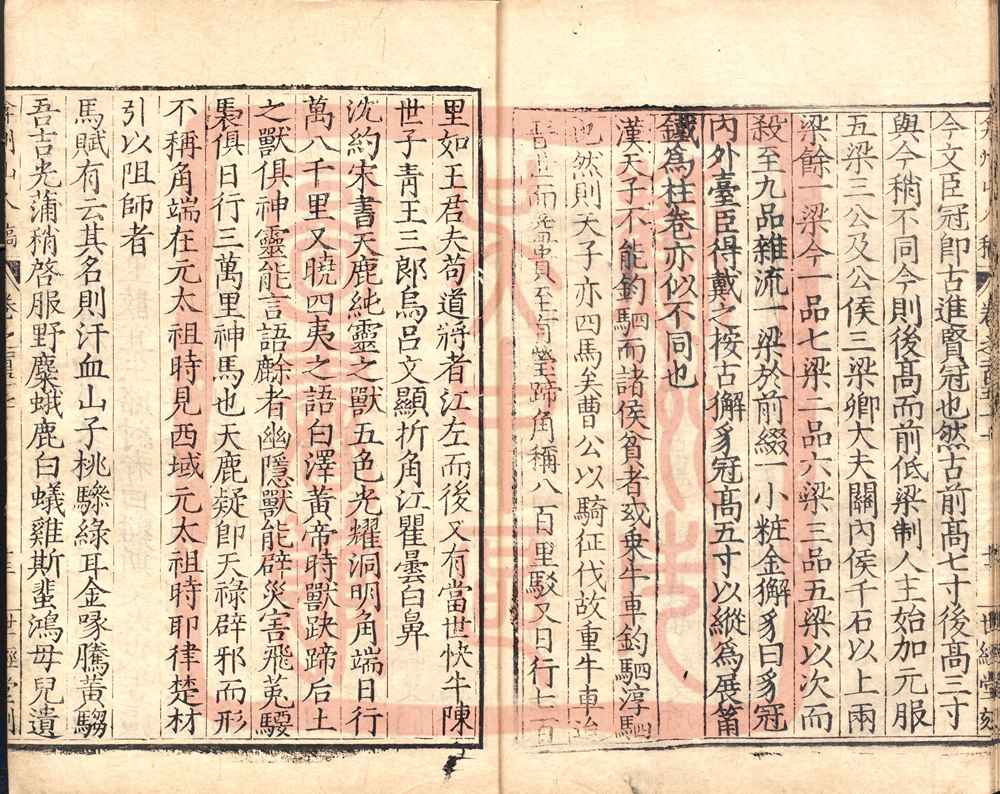 今文臣冠即古進賢冠也然古前高七寸後高三寸
與今稍不同今則後高而前低梁制人主始加元服
五梁三公及公侯三梁卿大夫關內侯千石以上兩
梁餘一梁今一品七梁二品六梁三品五梁以次而
殺至九品雜流一梁於前綴一小粧金獬豸曰豸冠
內外臺臣得戴之按古獬豸冠高五寸以縱為展筩
鐵為柱卷亦似不同也
漢天子不能鈞駟而諸侯貧者或乗牛車鈞駟淳駟
也然則天子亦四馬矣曹公以騎征伐故重牛車
晉世而貴至有瑩蹄角稱八百里駁又日行七百
里如王君夫苟道將者江左而後又有當世快牛陳
世子青王三郎烏呂文顯折角江瞿曇白鼻
沈約宋書天鹿純靈之獸五色光耀洞明角端日行
萬八千里又曉四夷之語白澤黃帝時獸趹蹄后土
之獸俱神靈能言語麟者幽隱獸能辟災害飛菟騕
褭俱日行三萬里神馬也天鹿疑即天祿辟邪而形
不稱角端在元太祖時見西域元太祖時耶律楚材
引以阻師者
馬賦有云其名則汗血山子桃騄綠耳金喙騰黃騶
吾吉光蒲稍啓服野麋蛾鹿白蟻雞斯蜚鴻母兒遺
世經堂刻